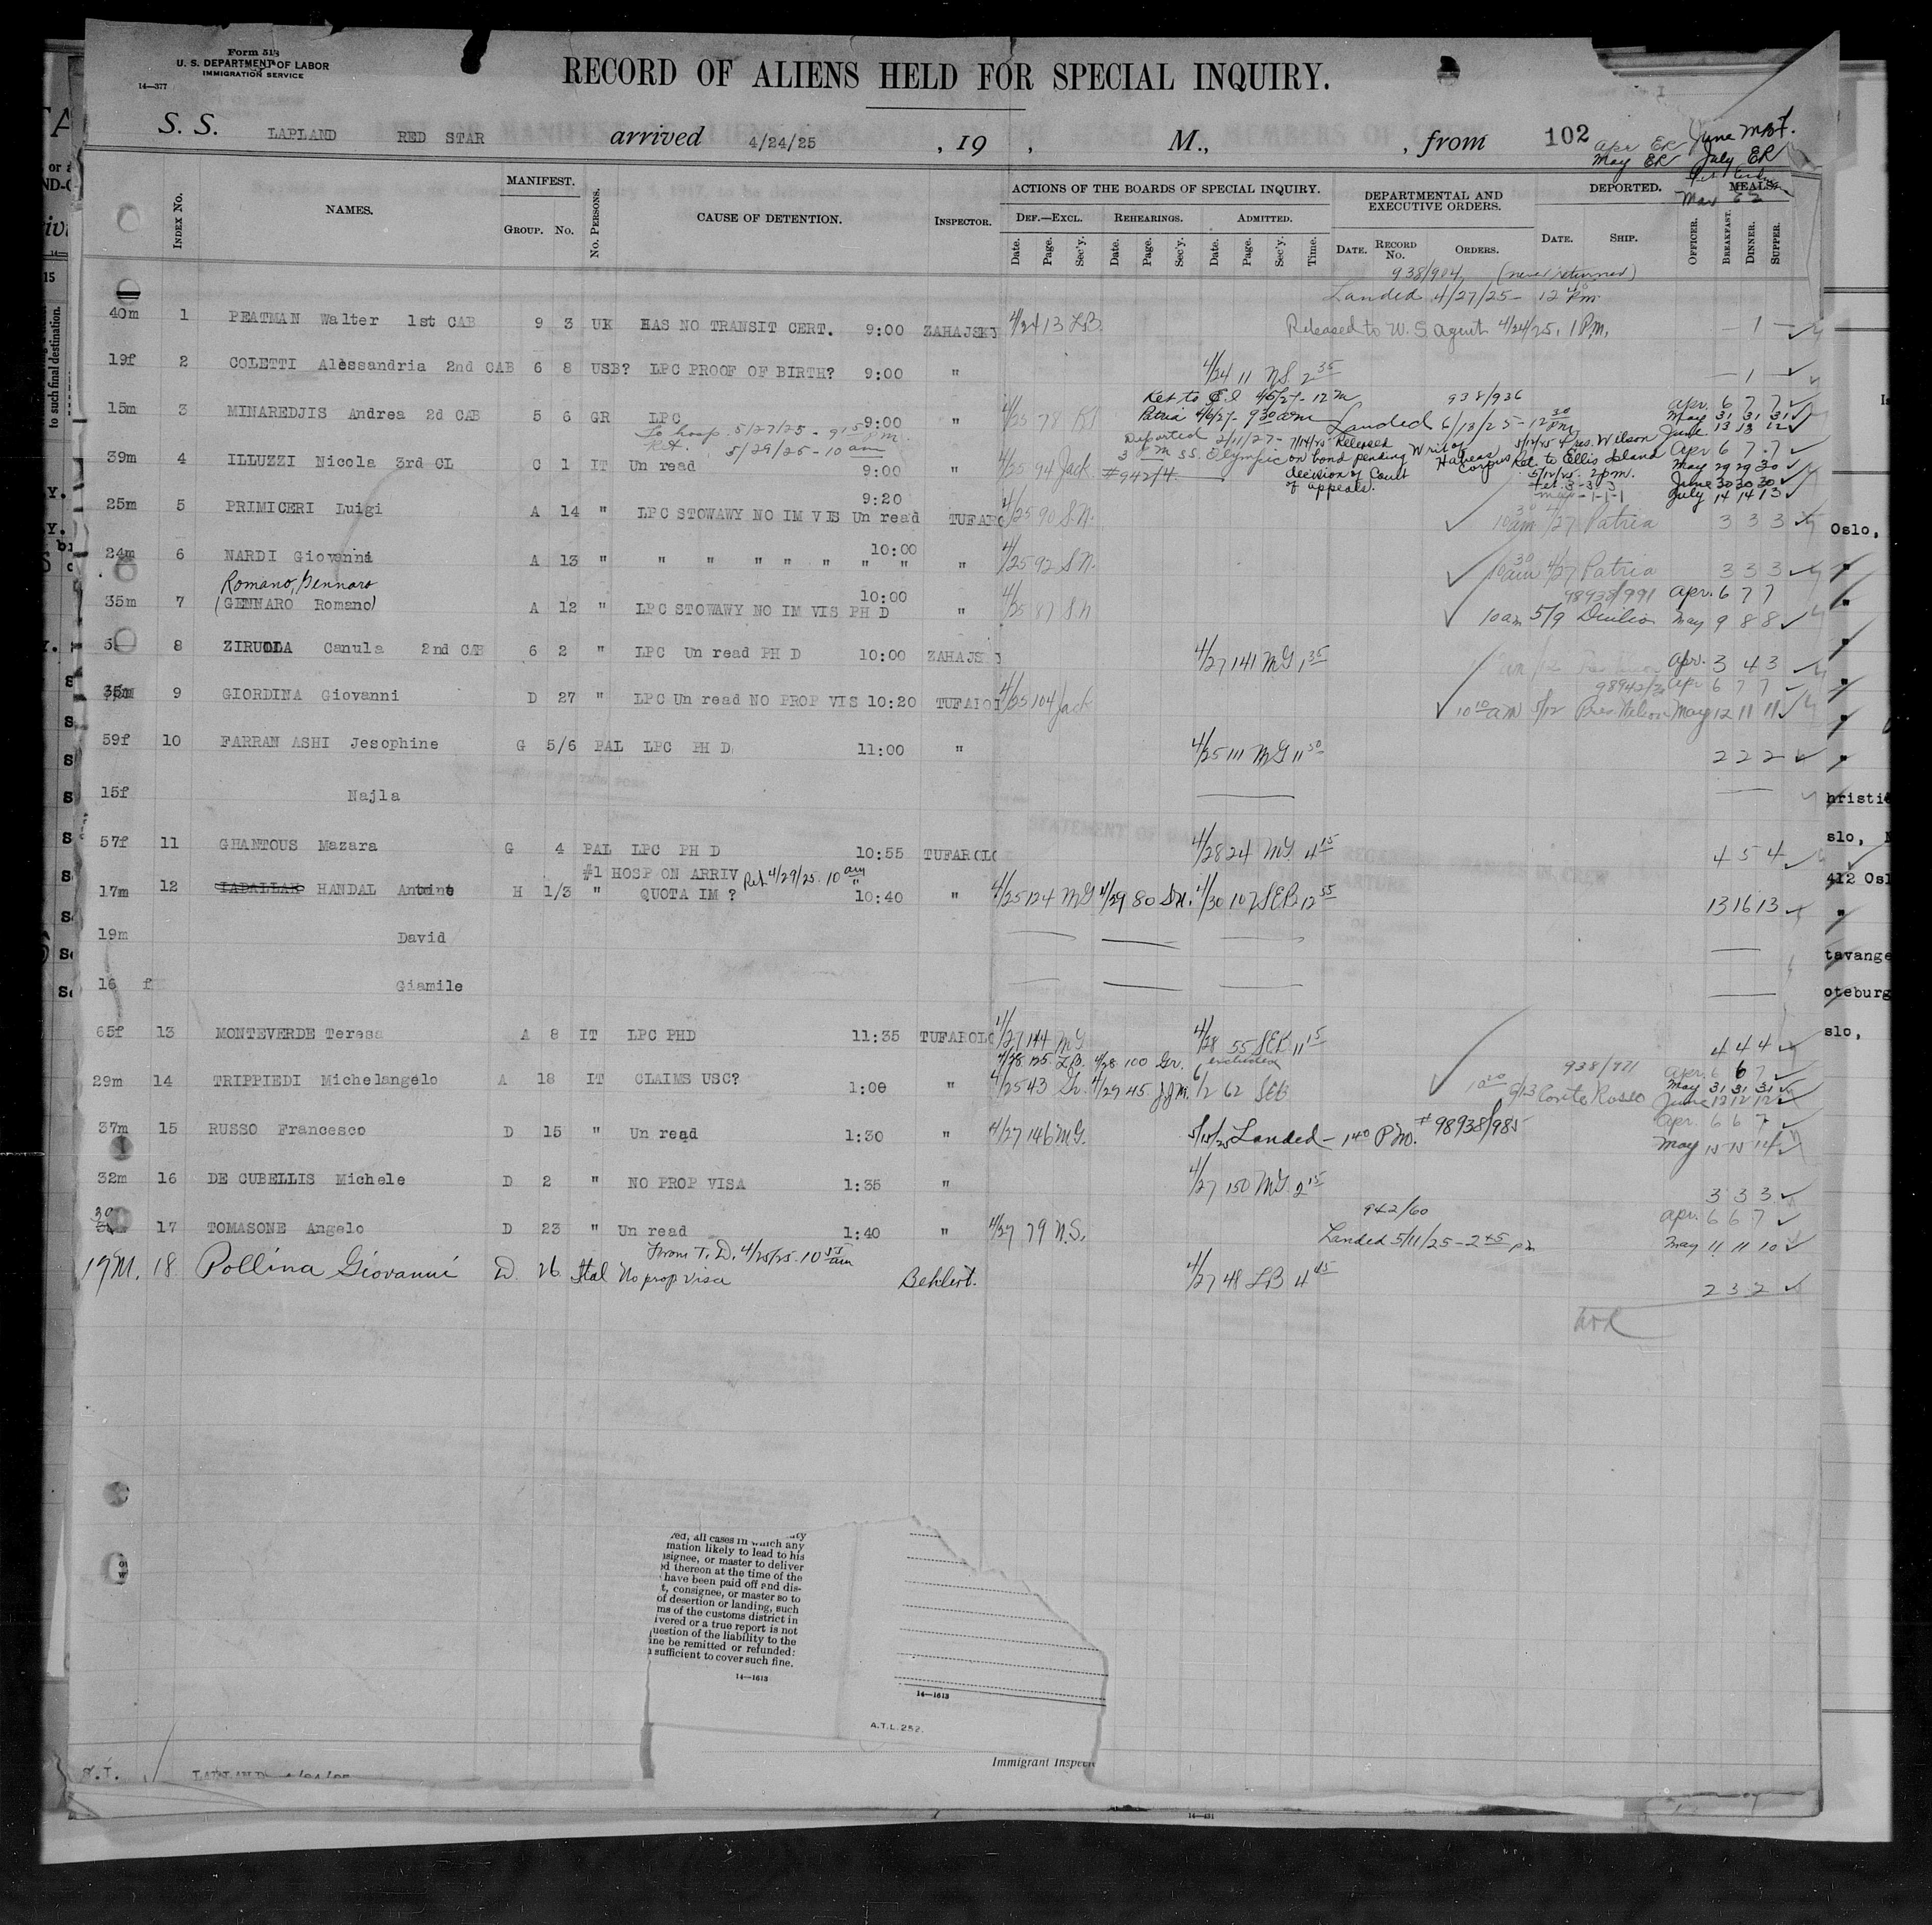 Form 518
U. S. DEPARTMENT OF LABOR
IMMIGRATION SERVICE
14—377
RECORD OF ALIENS HELD FOR SPECIAL INQUIRY.
S. S. LAPLAND RED STAR arrived 4/24/25 , 19 , M., , from 102
Apr ER June MBF.
May ER July ER
INDEX No. NAMES. MANIFEST. GROUP. No. No. PERSONS. CAUSE OF DETENTION. INSPECTOR. ACTIONS OF THE BOARDS OF SPECIAL INQUIRY. DEF.—EXCL. REHEARINGS. ADMITTED. DEPARTMENTAL AND EXECUTIVE ORDERS. DEPORTED. MEALS.
Date. Page. Sec'y. Date. Page. Sec'y. Date. Page. Sec'y. Time. DATE. RECORD No. ORDERS. DATE. SHIP. OFFICER. BREAKFAST. DINNER. SUPPER.
938/984 (never returned)
Landed 4/27/25 - 12 40 Pm
40m 1 PEATMAN Walter 1st CAB 9 3 UK HAS NO TRANSIT CERT. 9:00 ZAHAJSKJ 4/24 13 LB. Released to W. S agent 4/24/25, 1 PM. — 1 —
19f 2 COLETTI Alessandria 2nd CAB 6 8 USB? LPC PROOF OF BIRTH? 9:00 " 4/24 11 NS. 2 35 — 1 —
Ret to E.I 4/5/27 - 12 m 938/936
15m 3 MINAREDJIS Andrea 2d CAB 5 6 GR LPC 9:00 " 4/25 78 Patria 4/6/27 - 9 30 am Landed 6/13/25 - 12 30 pm Apr. 6 7 7
May 31 31 31
To hosp. 5/27/25 - 9 15 pm. June 13 13 12
Ret. 5/29/25 - 10 am
Deported 2/11/27 - 7/14/25 Released 5/12/25 Pres. Wilson
39m 4 ILLUZZI Nicola 3rd CL C 1 IT Un read 9:00 " 4/25 94 Jack 3 PM SS. Olympic on bond pending Writ of Habeas Corpus Ret. to Ellis Island Apr 6 7 7
#942/4 decision of Court of appeals. 5/12/25. 2 pm. May 29 29 30
Feb. 3-3-3 June 30 30 30
Mar - 1-1-1 July 14 14 13
25m 5 PRIMICERI Luigi A 14 " LPC STOWAWY NO IM VIS Un read 9:20 TUFARO 4/25 90 S.N. 10 30 am 4/27 Patria 3 3 3
24m 6 NARDI Giovanni A 13 " " " " " " " " 10:00 " 4/25 92 S.N. 10 30 am 4/27 Patria 3 3 3
Romano, Gennaro
35m 7 (GENNARO Romano) A 12 " LPC STOWAWY NO IM VIS PH D 10:00 " 4/25 87 S.N 98938/991 Apr. 6 7 7
10 am 5/9 Duilio May 9 8 8
8 ZIRUOLA Canula 2nd CAB 6 2 " LPC Un read PH D 10:00 ZAHAJS J 4/27 141 MG 1 35 Apr. 3 4 3
35m 9 GIORDINA Giovanni D 27 " LPC Un read NO PROP VIS 10:20 TUFAROI 4/25 104 Jack Apr 6 7 7
10 10 am 5/12 Pres. Wilson May 12 11 11
59f 10 FARRAN ASHI Jesophine G 5/6 PAL LPC PH D 11:00 " 4/25 111 MG 11 30 2 2 2
15f Najla
57f 11 GHANTOUS Mazara G 4 PAL LPC PH D 10:55 TUFAROLO 4/28 24 MG. 4 15 4 5 4
#1 HOSP ON ARRIV Ret 4/29/25. 10 am
17m 12 HANDAL Antoine H 1/3 " QUOTA IM ? 10:40 " 4/25 124 MG 4/29 80 SN. 4/30 107 SEB 12 55 13 16 13
19m David
16 f Giamile
65f 13 MONTEVERDE Teresa A 8 IT LPC PHD 11:35 TUFAROLO 4/27 144 MG 4/28 55 SEB 11 15 4 4 4
4/28 125 LB. 4/28 100 Gr. excluded 938/971 Apr. 6 6 7
29m 14 TRIPPIEDI Michelangelo A 18 IT CLAIMS USC? 1:00 " 4/25 43 Gr. 4/29 45 JJM. 6/12 62 SEB 10 20 6/13 Conte Rosso May 31 31 31
June 12 12 12
37m 15 RUSSO Francesco D 15 " Un read 1:30 " 4/27 146 MG. 5/15/25 Landed - 1 40 P.M. #98938/985 Apr. 6 6 7
May 15 15 14
32m 16 DE CUBELLIS Michele D 2 " NO PROP VISA 1:35 " 4/27 150 MG. 2 15 3 3 3
942/60
17 TOMASONE Angelo D 23 " Un read 1:40 " 4/27 79 N.S. Landed 5/11/25 - 2 45 pm Apr. 6 6 7
May 11 11 10
From T. D. 4/25/25. 10 55 am
19M. 18 Pollina Giovanni D. 26 Ital No prop visa Behlert. 4/27 48 LB 4 45 2 3 2
red, all cases in which any
mation likely to lead to his
nsignee, or master to deliver
d thereon at the time of the
have been paid off and dis-
t, consignee, or master so to
of desertion or landing, such
ms of the customs district in
ivered or a true report is not
uestion of the liability to the
ine be remitted or refunded:
sufficient to cover such fine.
14—1613
14—1613
A.T.L. 252.
Immigrant Inspec
S.I.
Oslo,
hristi
slo,
412 Osl
tavange
oteburg
slo,
to such final destination.